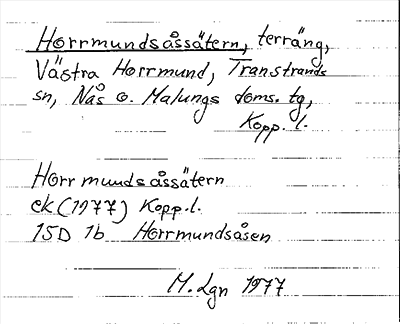 Horrmundsåssätern, terräng,
Västra Horrmund, Transtrands
sn, Nås o. Malungs doms. tg,
Kopp. l.
Horrmundsåssätern
ek (1977) Kopp. l.
15D 1b Horrmundsåsen
M. Lgn 1977